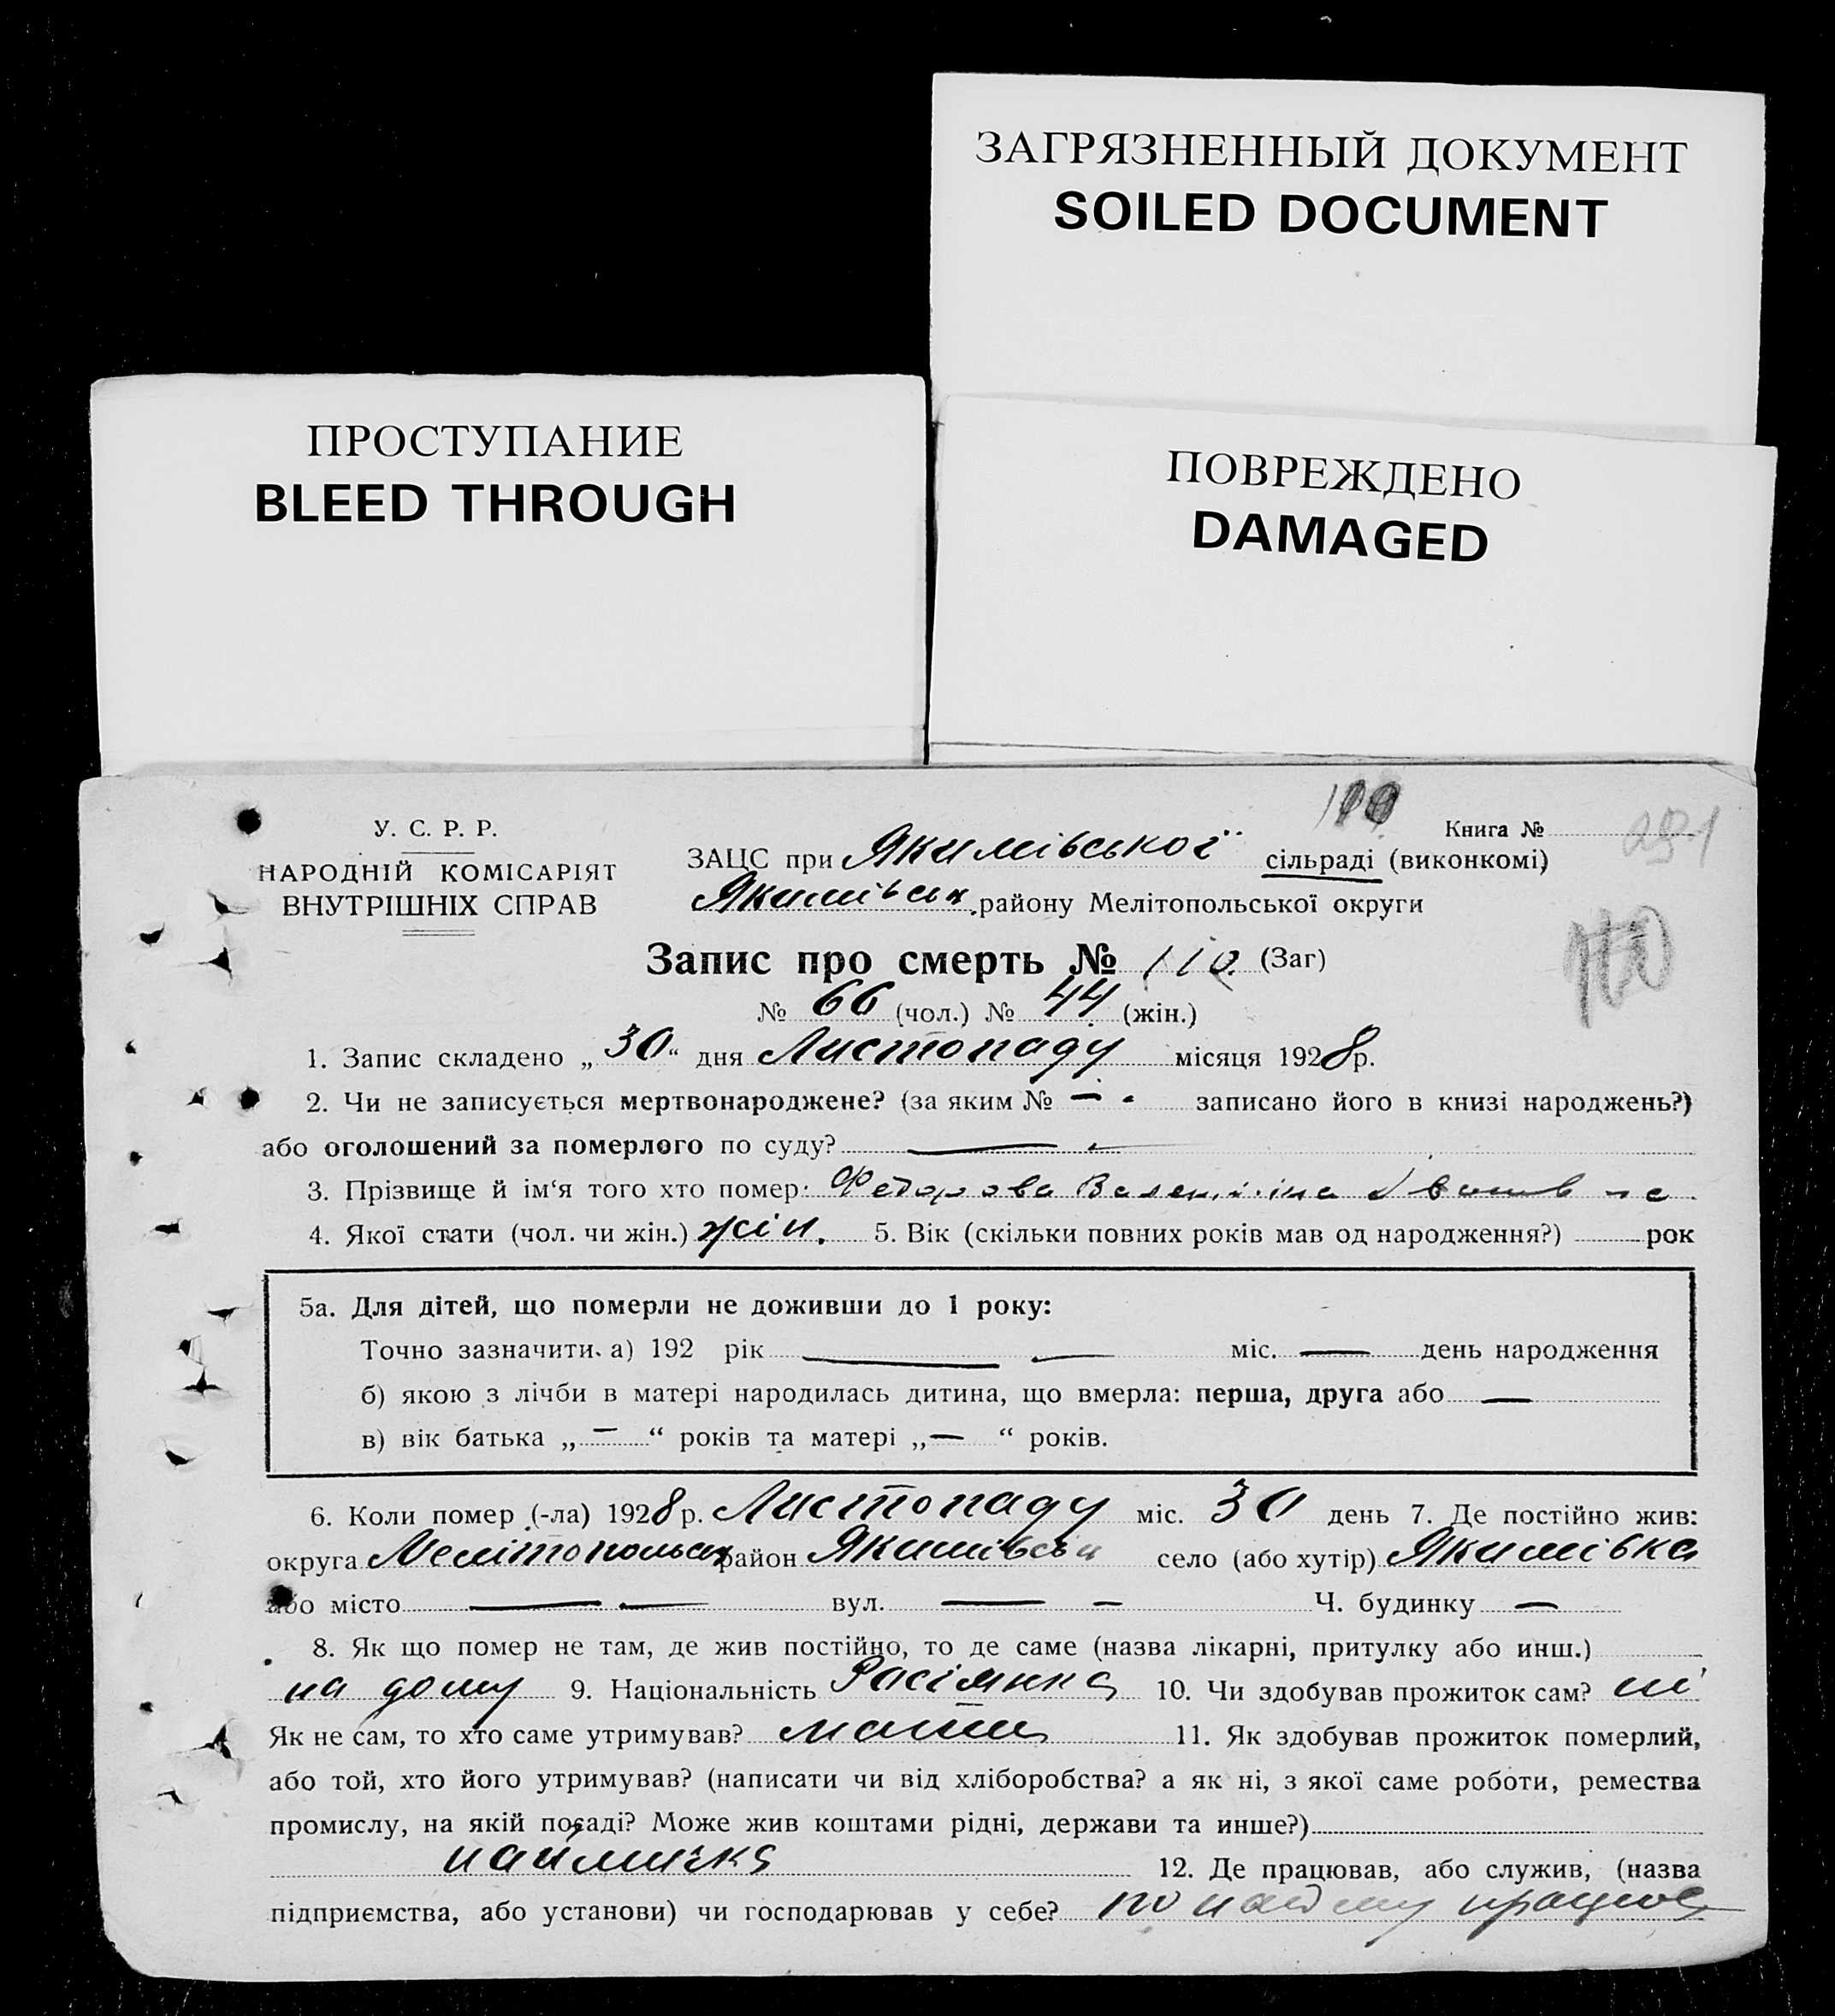 ЗАГРЯЗНЕННЫЙ ДОКУМЕНТ
SOILED DOCUMENT
ПРОСТУПАНИЕ
BLEED THROUGH
ПОВРЕЖДЕНО
DAMAGED
У. С. Р. Р.
НАРОДНІЙ КОМІСАРІЯТ
ВНУТРІШНІХ СПРАВ
Книга №
ЗАЦС при Якимівської сільраді (виконкомі)
Якимівськ. району Мелітопольської округи
Запис про смерть № 110 (Заг)
№ 66 (чол.) № 44 (жін.)
1. Запис складено „30“ дня Листопаду місяця 1928 р.
2. Чи не записується мертвонароджене? (за яким № — записано його в книзі народжень?)
або оголошений за померлого по суду? —
3. Прізвище й ім‘я того хто помер: Федорова Валентіна Івановна
4. Якої стати (чол. чи жін.) жін. 5. Вік (скільки повних років мав од народження?) рок
5а. Для дітей, що померли не доживши до 1 року:
Точно зазначити а) 192 рік — — міс. — день народження
б) якою з лічби в матері народилась дитина, що вмерла: перша, друга або —
в) вік батька „—“ років та матері „—“ років.
6. Коли помер (-ла) 1928 р. Листопаду міс. 30 день 7. Де постійно жив:
округа Мелітопольськ район Якимівськ село (або хутір) Якимівка
або місто — — вул. — — Ч. будинку —
8. Як що помер не там, де жив постійно, то де саме (назва лікарні, притулку або инш.)
на дому 9. Національність Расіянка 10. Чи здобував прожиток сам? ні
Як не сам, то хто саме утримував? мати 11. Як здобував прожиток померлий,
або той, хто його утримував? (написати чи від хліборобства? а як ні, з якої саме роботи, ремества
промислу, на якій посаді? Може жив коштами рідні, держави та инше?)
наймичка 12. Де працював, або служив, (назва
підприємства, або установи) чи господарював у себе? по найму працює